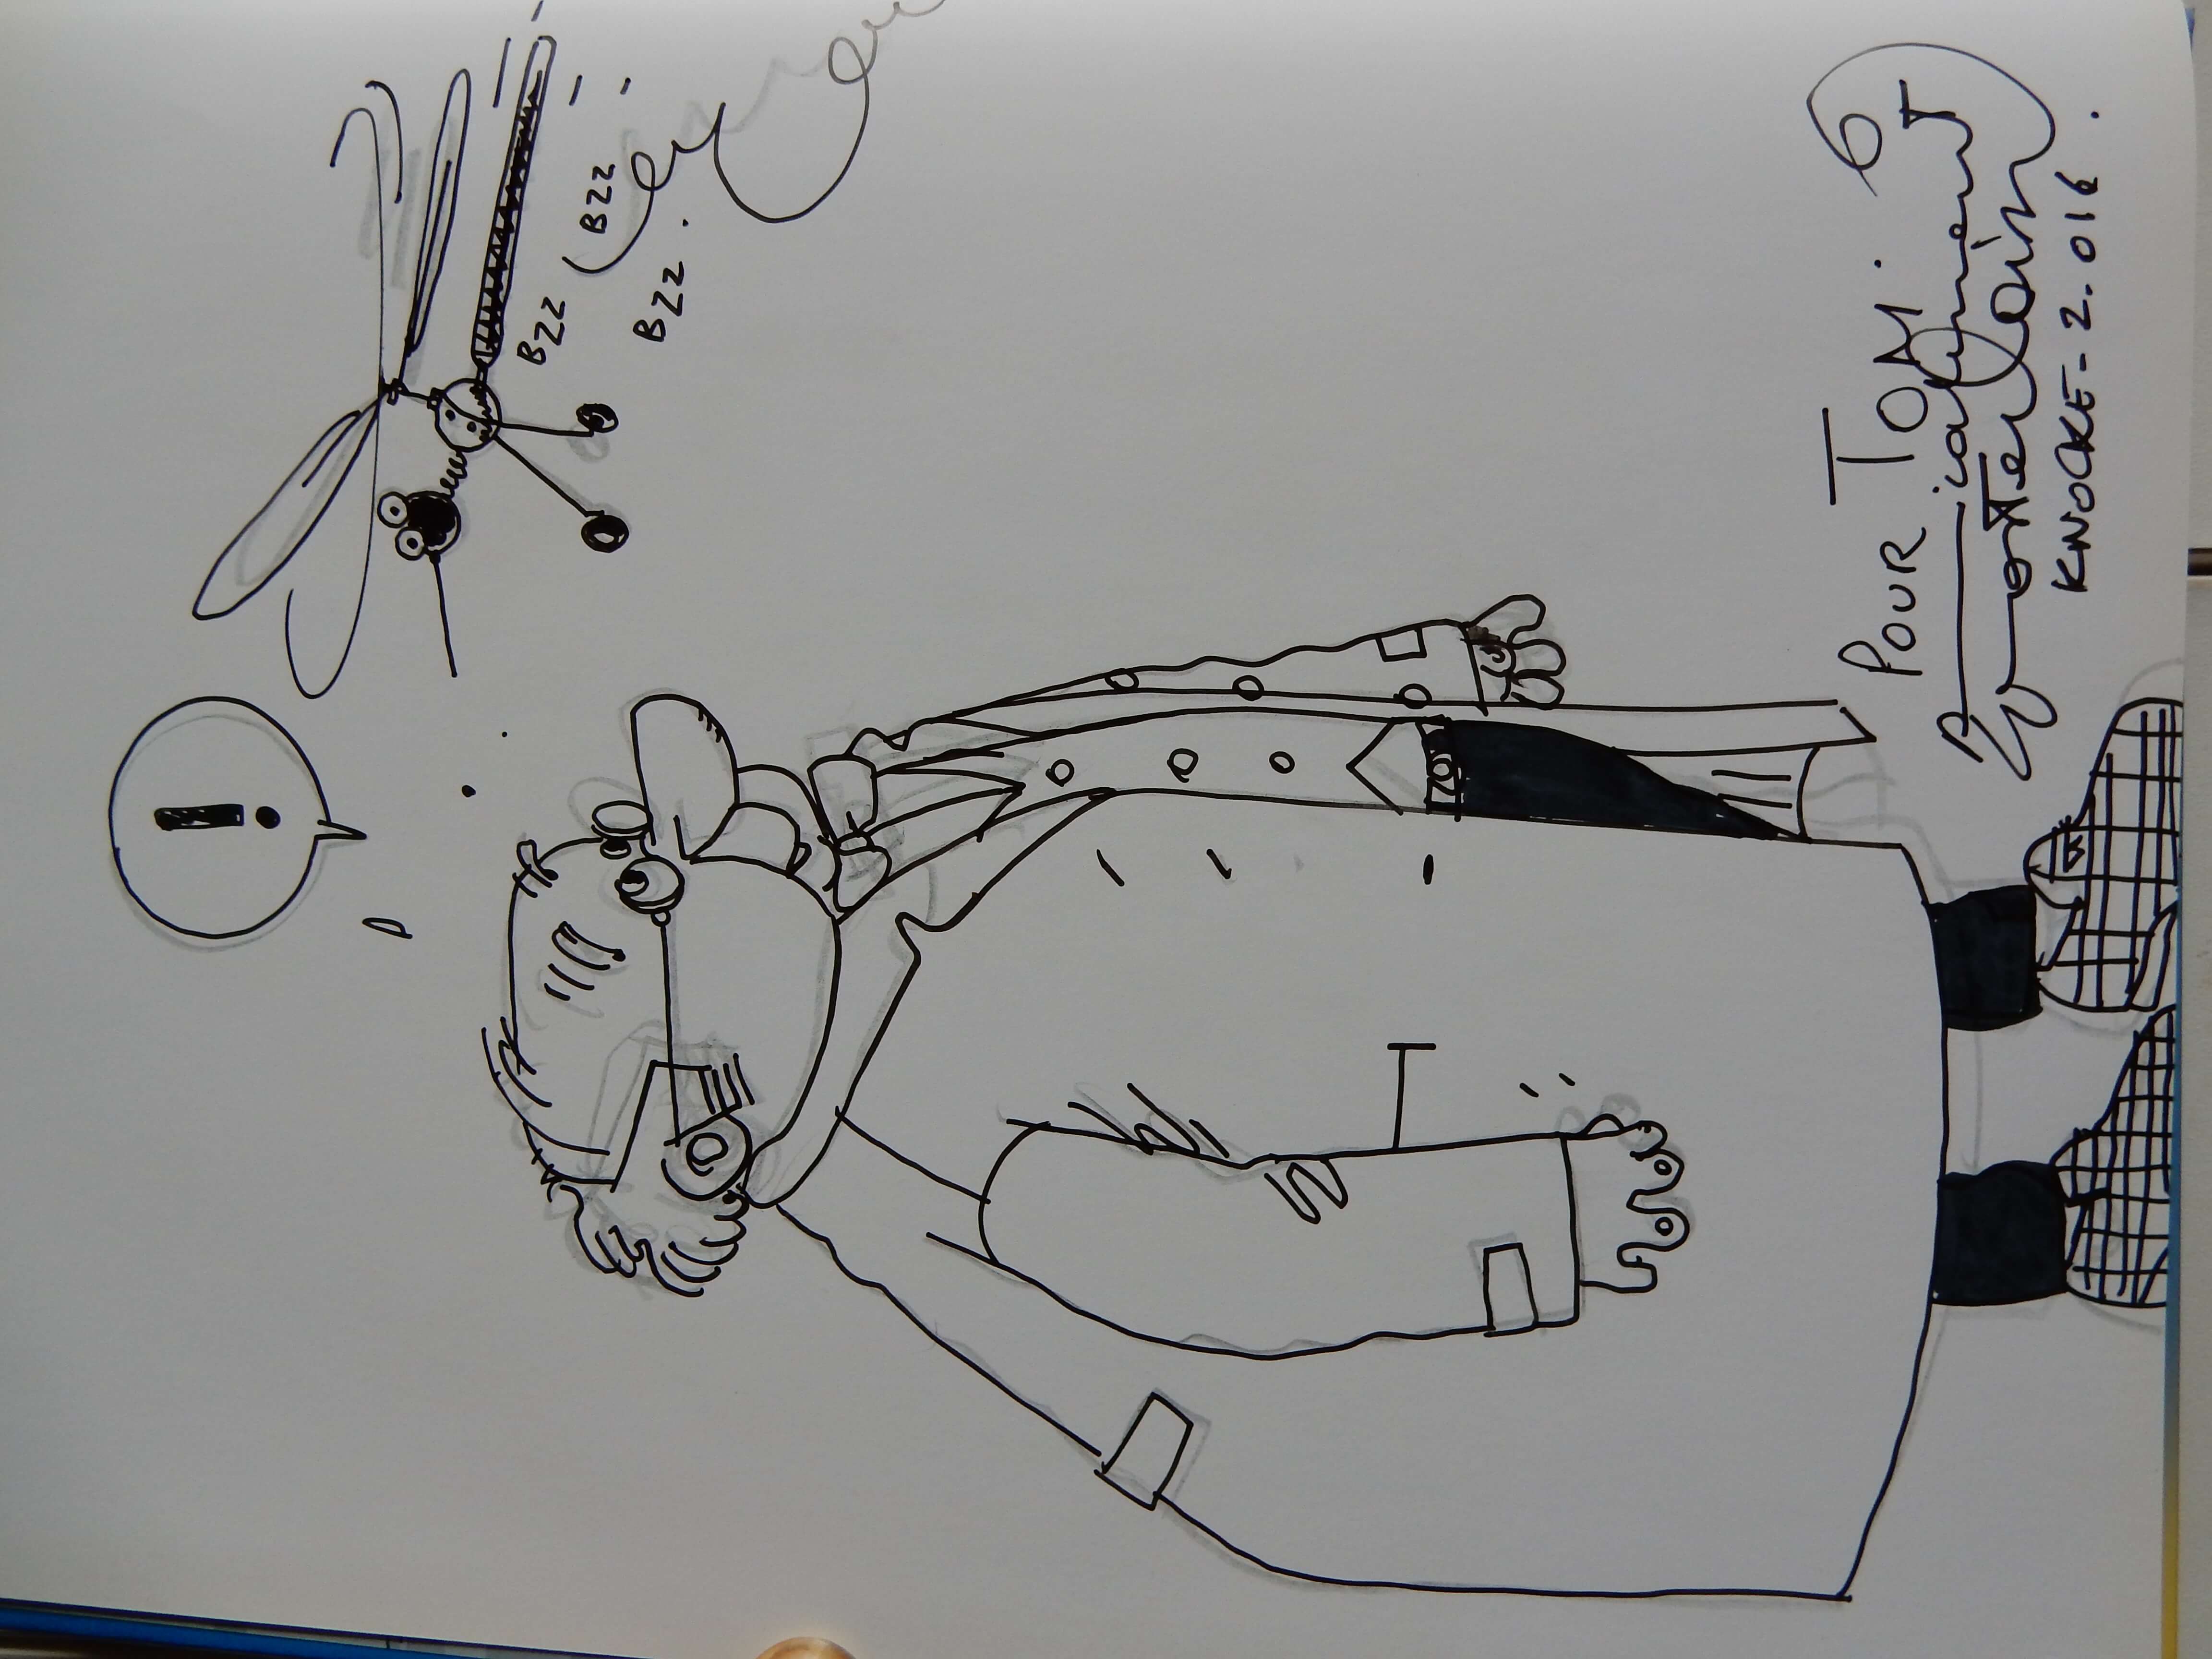 !
BZZ
BZZ
BZZ.
POUR TOM.
Amicalement
Wasterlain
KNOCKE-2.016.